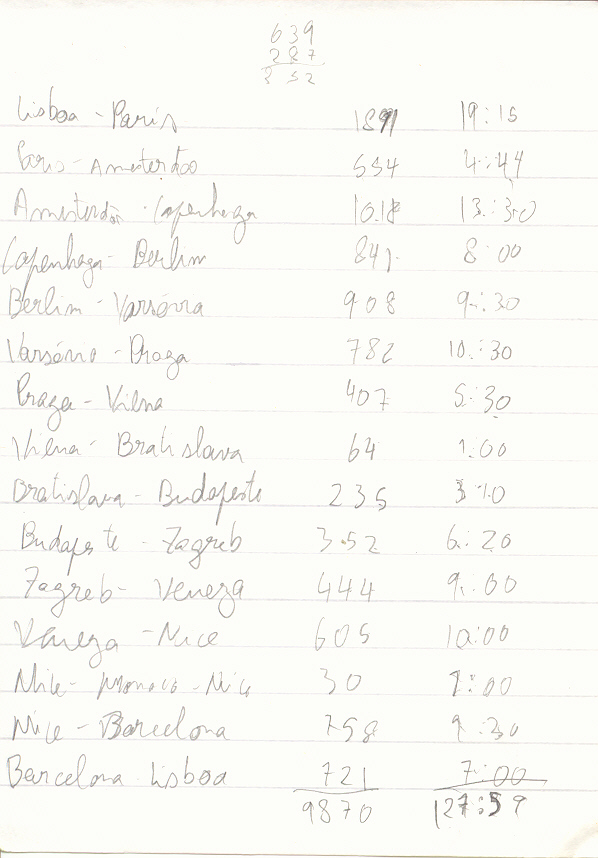 639
287
352
Lisboa - Paris 1891 19:15
Paris - Amesterdão 554 4:44
Amesterdão - Copenhaga 1018 13:30
Copenhaga - Berlim 841 8:00
Berlim - Varsóvia 908 9:30
Varsóvia - Praga 782 10:30
Praga - Viena 407 5:30
Viena - Bratislava 64 1:00
Bratislava - Budapeste 235 3:10
Budapeste - Zagreb 352 6:20
Zagreb - Veneza 444 9:00
Veneza - Nice 605 10:00
Nice - Monaco - Nice 30 1:00
Nice - Barcelona 758 9:30
Barcelona Lisboa 721 7:00
9870 127:59